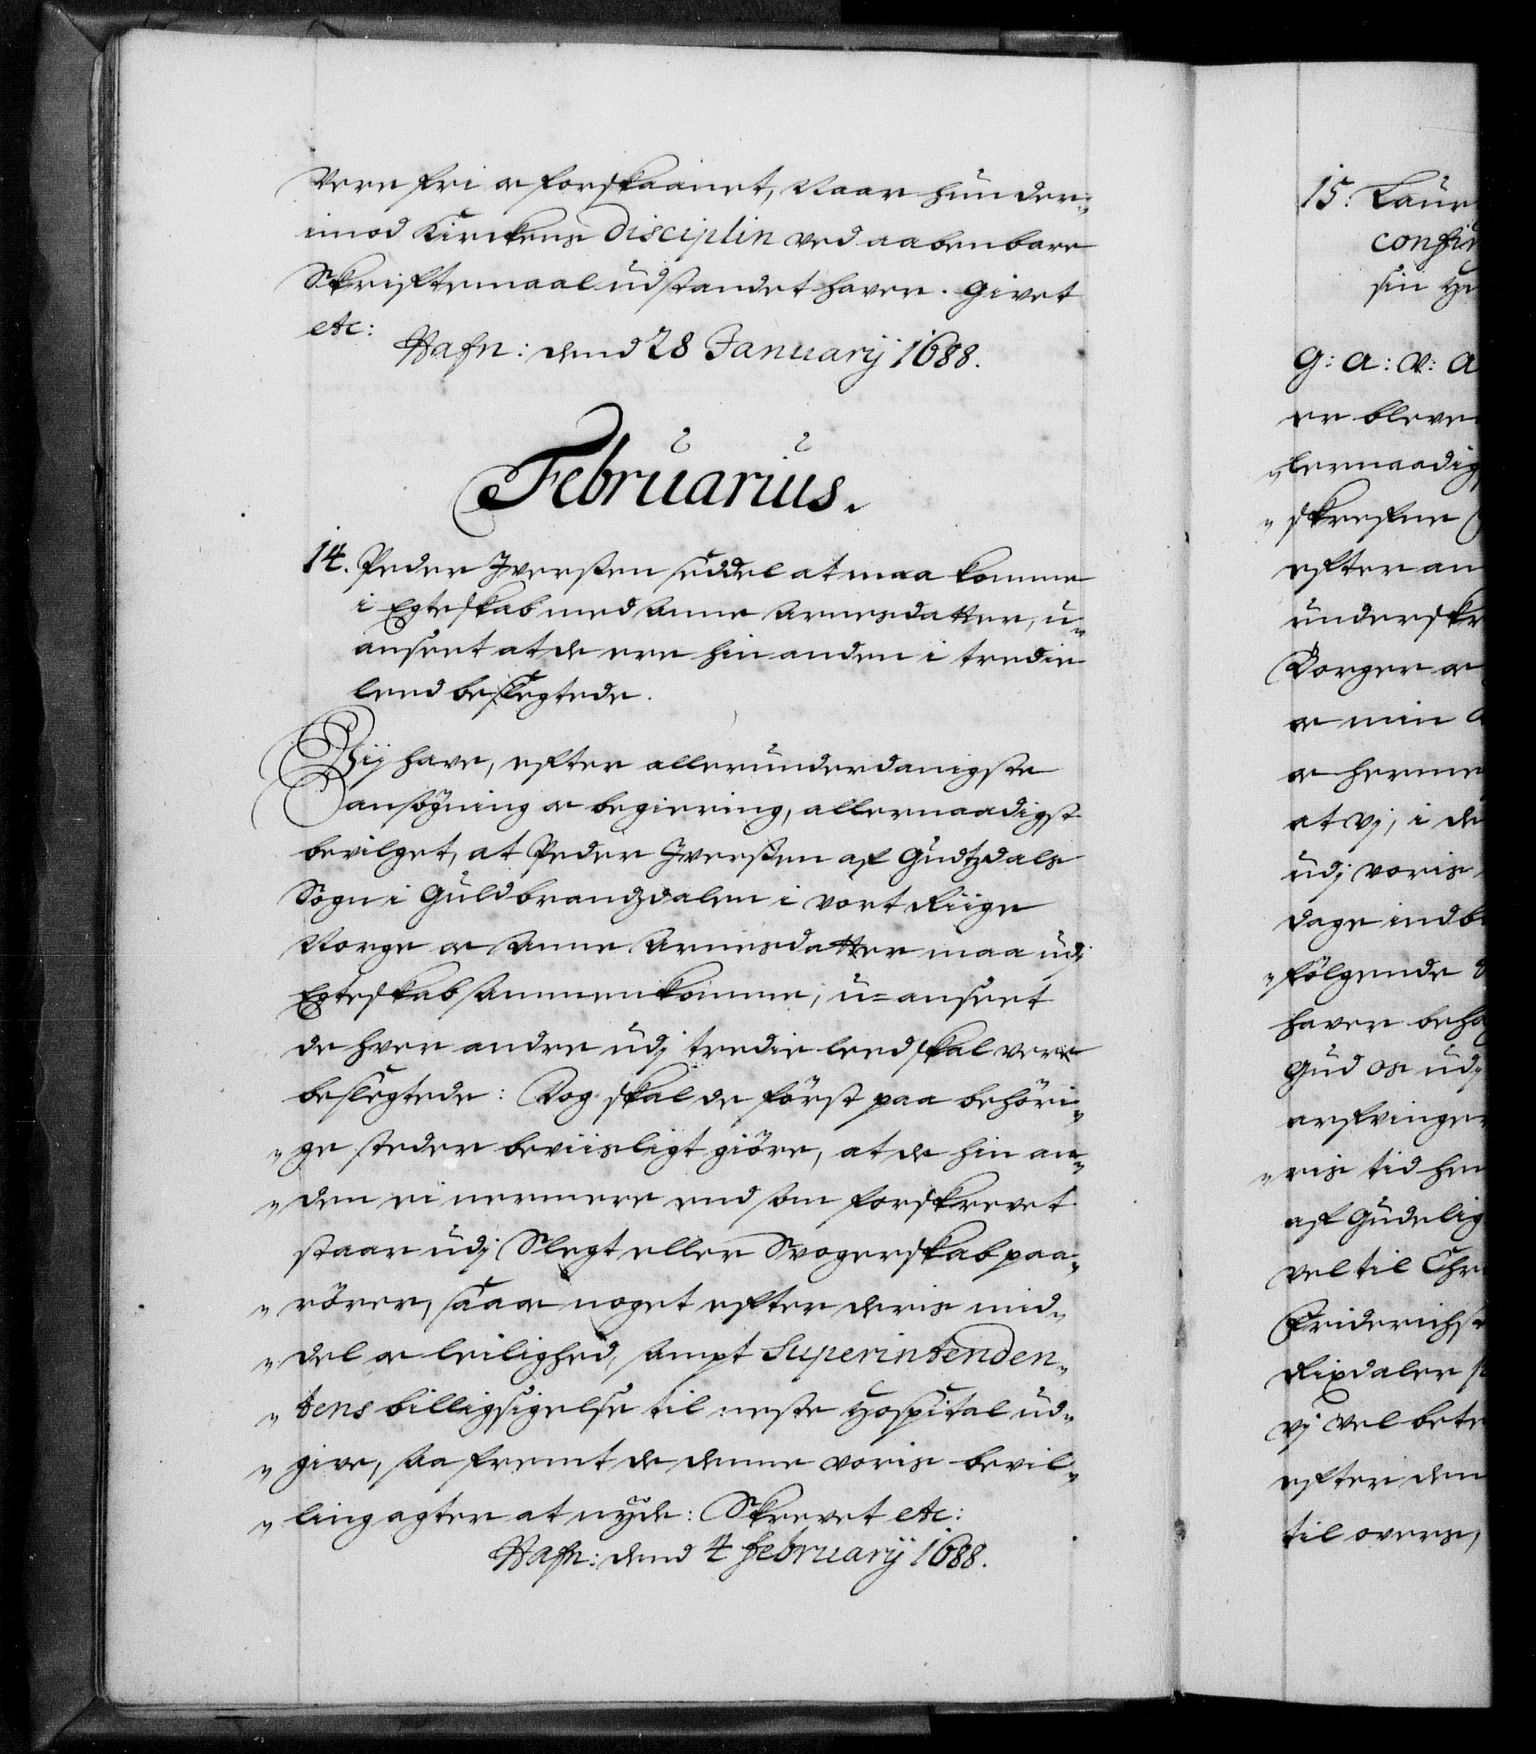 Vere fri oc forskaanet, Naar hun der-
imod Kirckens Disciplin ved aabenbare
Skriftemaal udstandet haver. Givet
etc:
Hafn: dend 28 Januarij 1688.
Februarius.
14. Peder Iversßen Siddel at maa komme
i Egteskab med Anne Arnesdatter, u-
anseet at de ere hin anden i tredie
leed beslegtede.
Vij have, efter allerunderdanigste
ansøgning oc begiering, allernaadigst
bevilget, at Peder Iverßen af Gudtzdals
Sogn i Guldbrandzdalen i vort Riige
Norge oc Anne Arnesdatter maa udj
Egteskab sammenkomme, u=anseet
de hver andre udj tredie leed skal vere
beslegtede: Dog skal de först paa behöri-
ge steder beviisligt giöre, at de hin an-
den ei nermere end som forskrevet
staar udj Slegt eller Svogerskab paa-
rörer, saa oc noget efter deris mid-
del oc leilighed, sampt Superintenden-
tens billigsigelse til neste Hospital ud-
give, saa fremt de denne voris bevil-
ling agter at nyde: Skrevet etc:
Hafn: dend 4 februarij 1688.
15. Laur
confir
sin Hu
G: A: V: A
er bleve
lernaadig
skrefne
efter an
underskr
Borger oc
oc min
oc herme
at vj, i de
udj voris
dage indb
fölgende
haver beha
Gud os udj
arfvinger
ris tid hen
af Gudelig
vel til Chr
Friderichs
Rixdaler
vj vel bete
efter den
til overs,